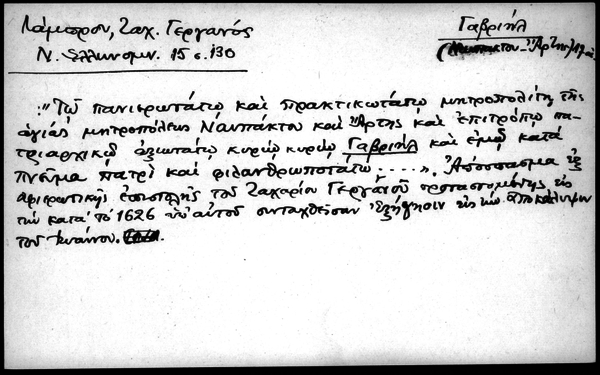 Λάμπρου, Ζαχ. Γεργανός
Γαβριήλ
Ν. Ελληνομν. 15 σ. 130
Ἄρτης
:"Τῷ πανιερωτάτῳ καὶ πρακτικωτάτῳ μητροπολίτῃ τῆς
ἁγίας μητροπόλεως Ναυπάκτου καὶ Ἄρτης καὶ ἐπιτρόπῳ πα-
τριαρχικῷ ἀξιωτάτῳ κυρίῳ κυρίῳ Γαβριὴλ καὶ ἐμῷ κατὰ
πνεῦμα πατρὶ καὶ φιλανθρωποτάτῳ.....». Ἀπόσπασμα ἐξ
ἀφιερωτικῆς ἐπιστολῆς τοῦ Ζαχαρίου Γεργανοῦ προτασσομένης εἰς
τὴν κατὰ τὸ 1626 ὑπ' αὐτοῦ συνταχθεῖσαν Ἐξήγησιν εἰς τὴν Ἀποκάλυψιν
τοῦ Ἰωάννου.